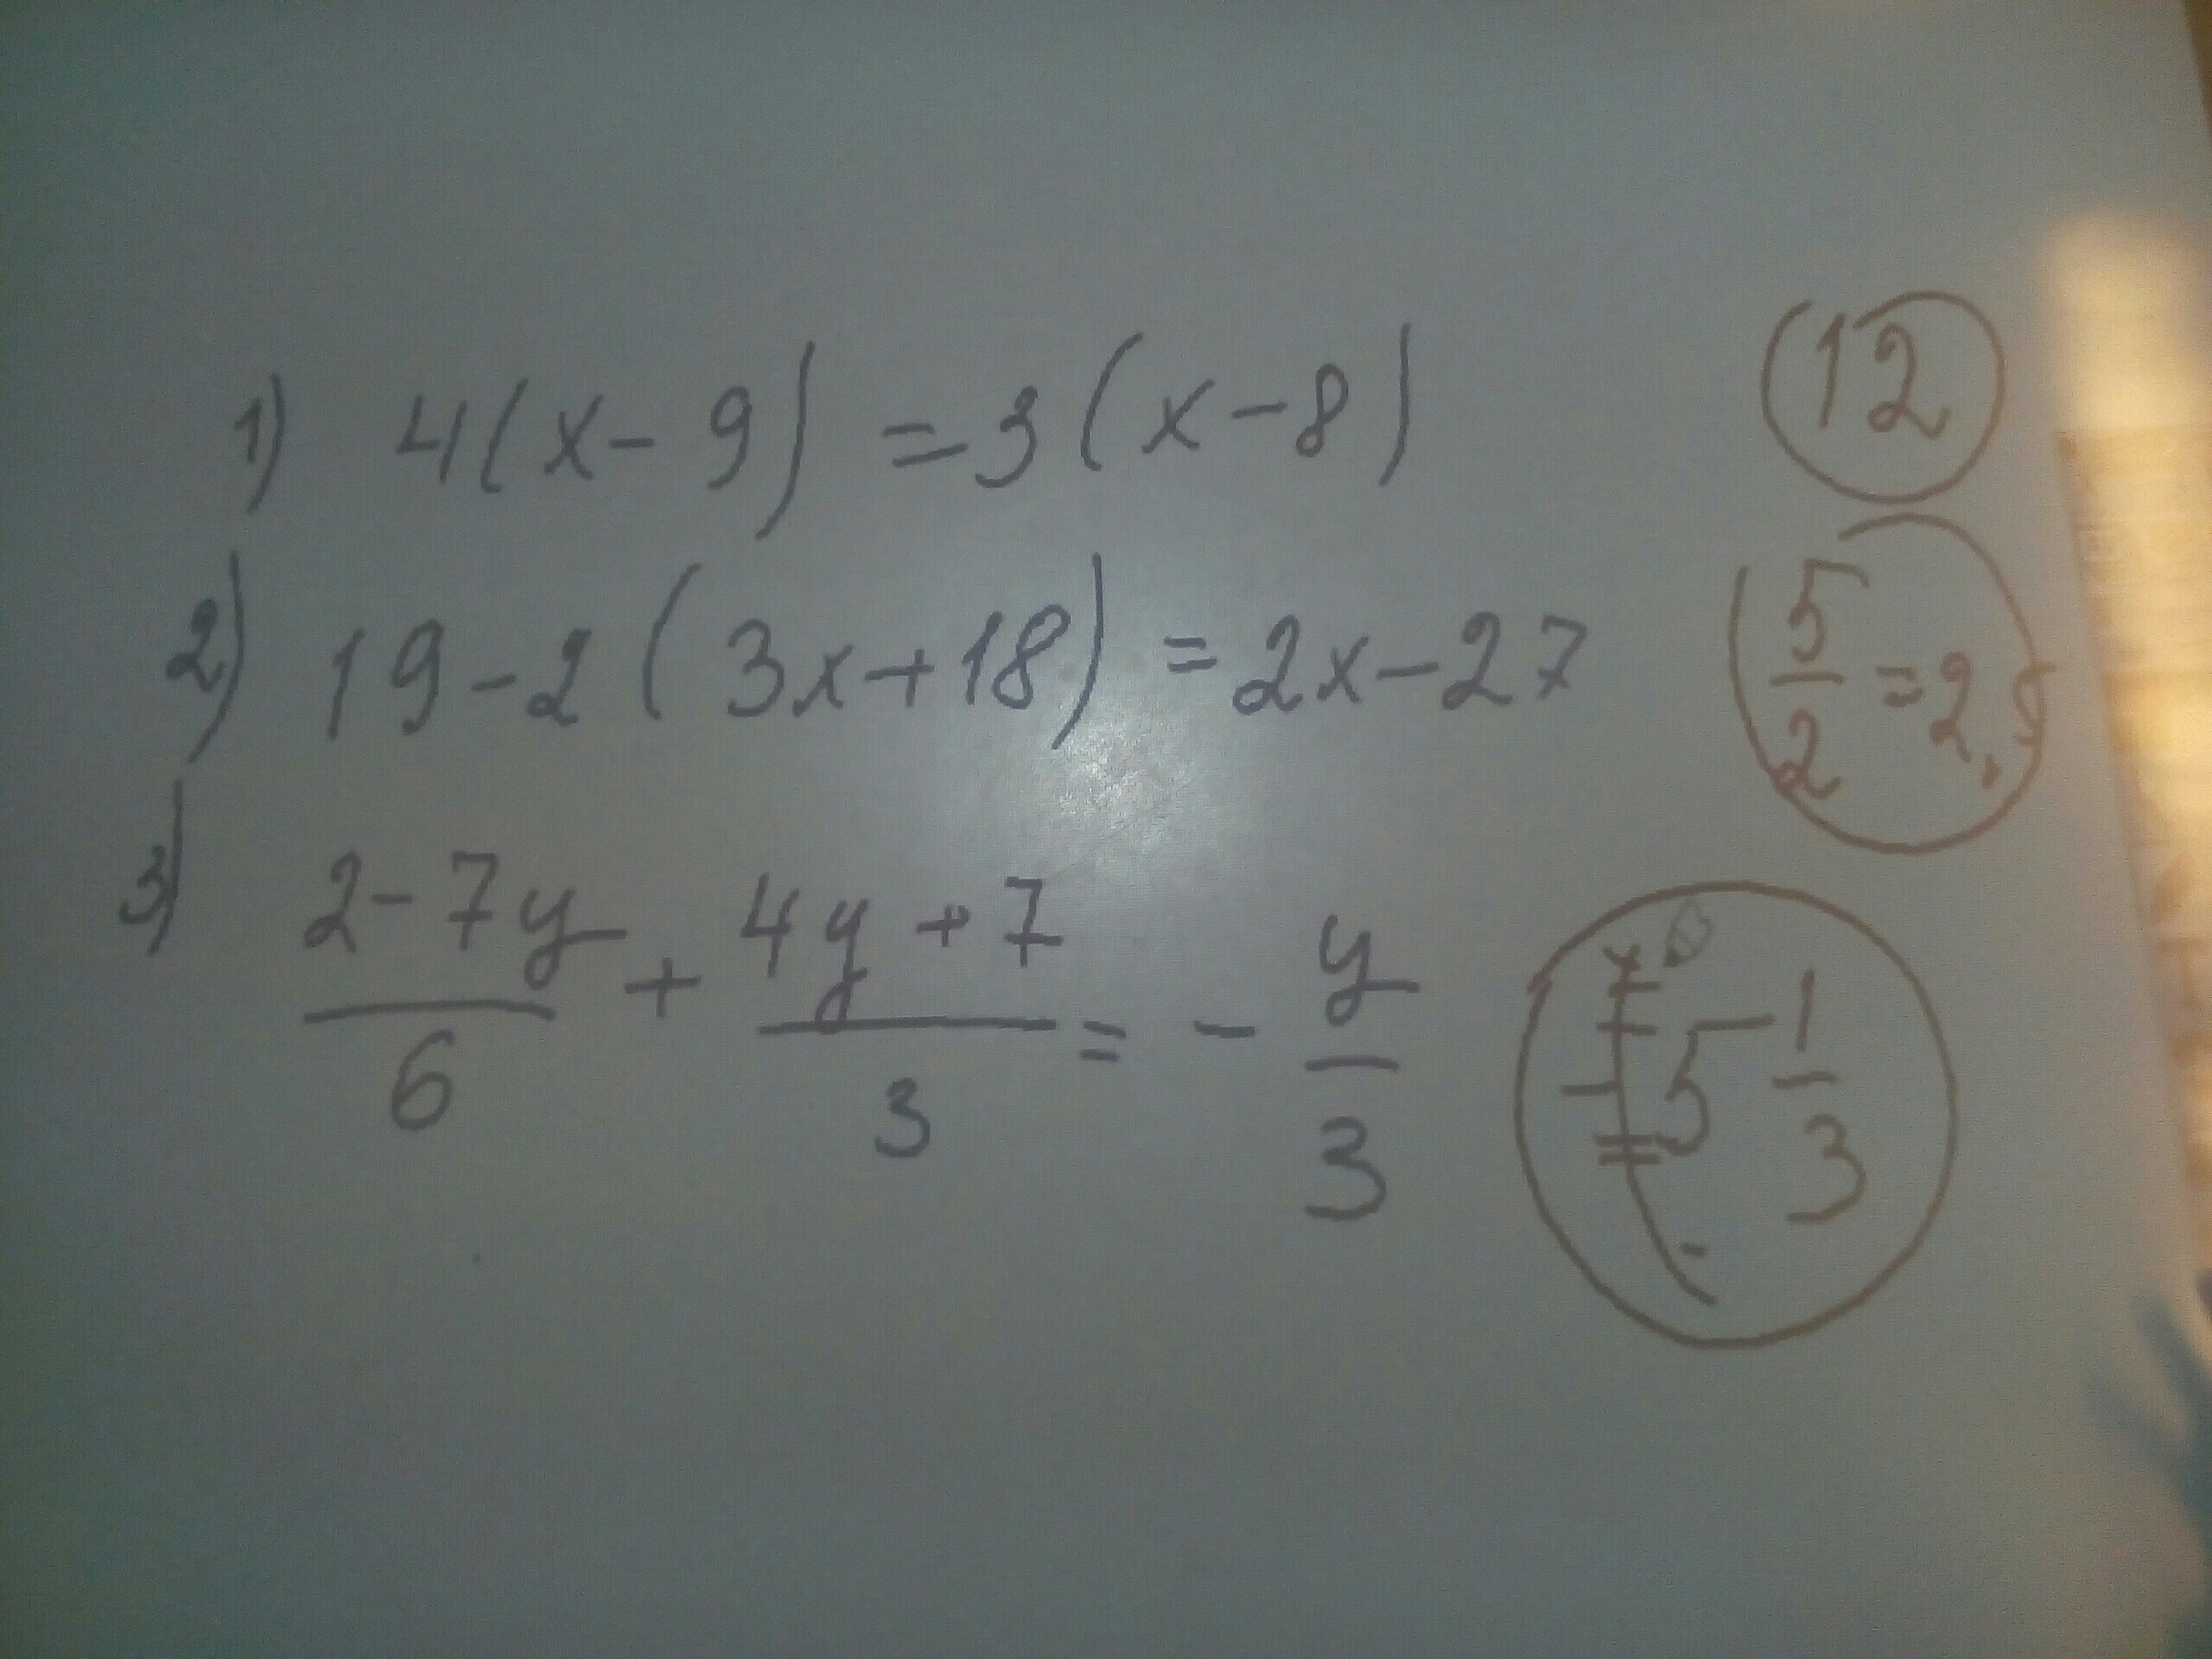 1) 4(x-9)=3(x-8) 12
2) 19-2(3x+18)=2x-27 5/2=2,5
3) (2-7y)/6 + (4y+7)/3 = - y/3 -5 1/3